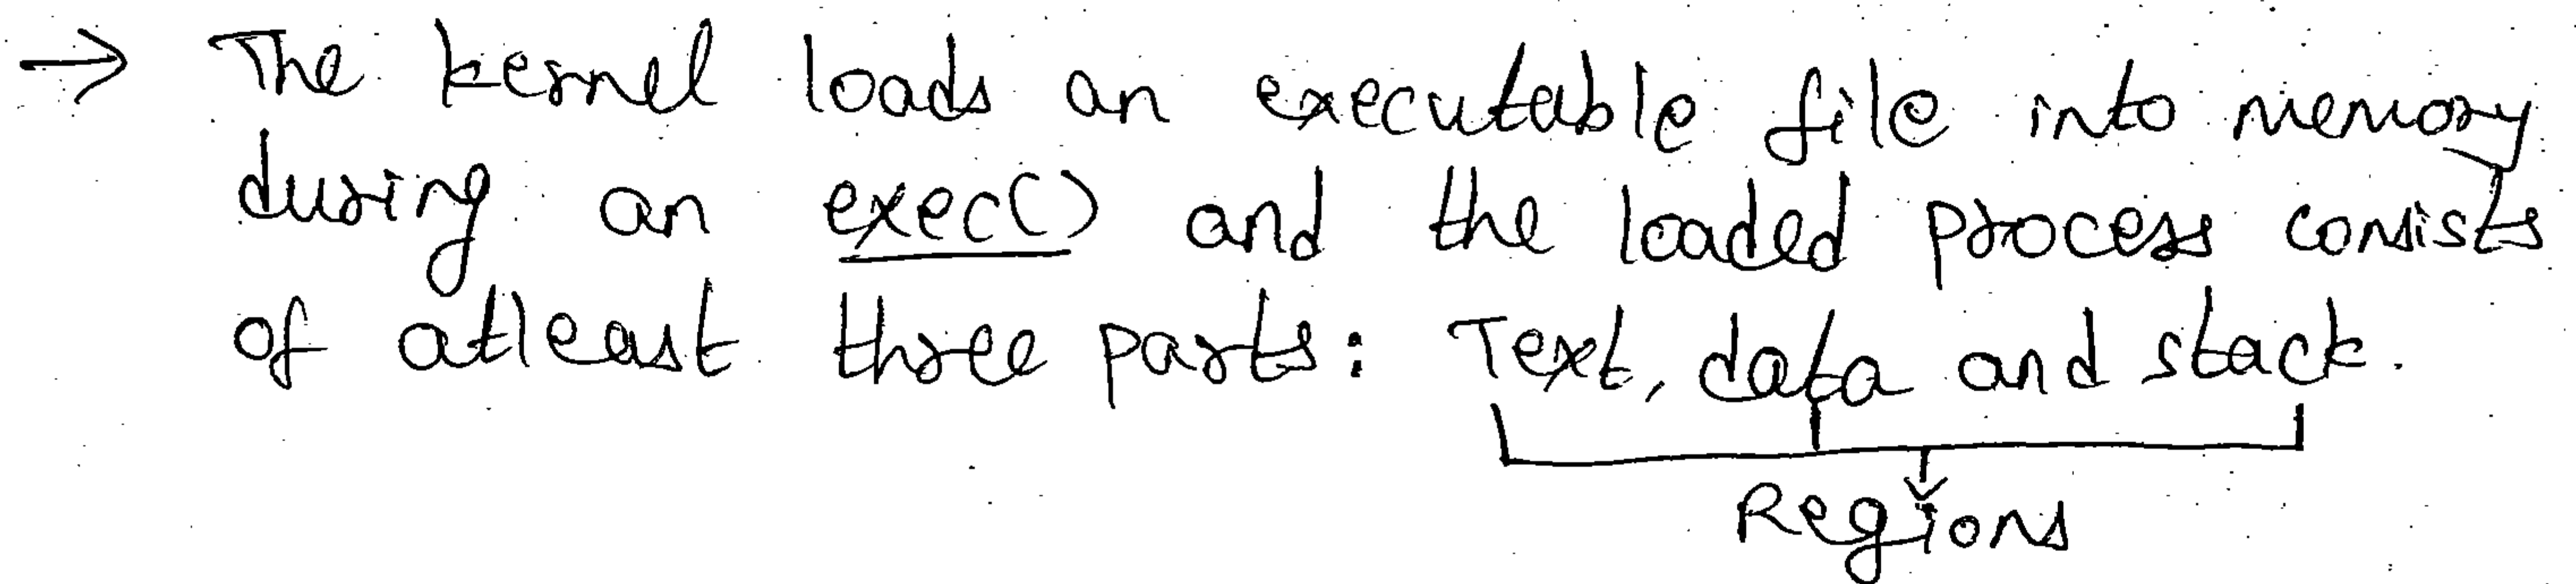 → The kernel loads an executable file into memory
during an exec() and the loaded process consists
of atleast three parts: Text, data and stack.
Regions